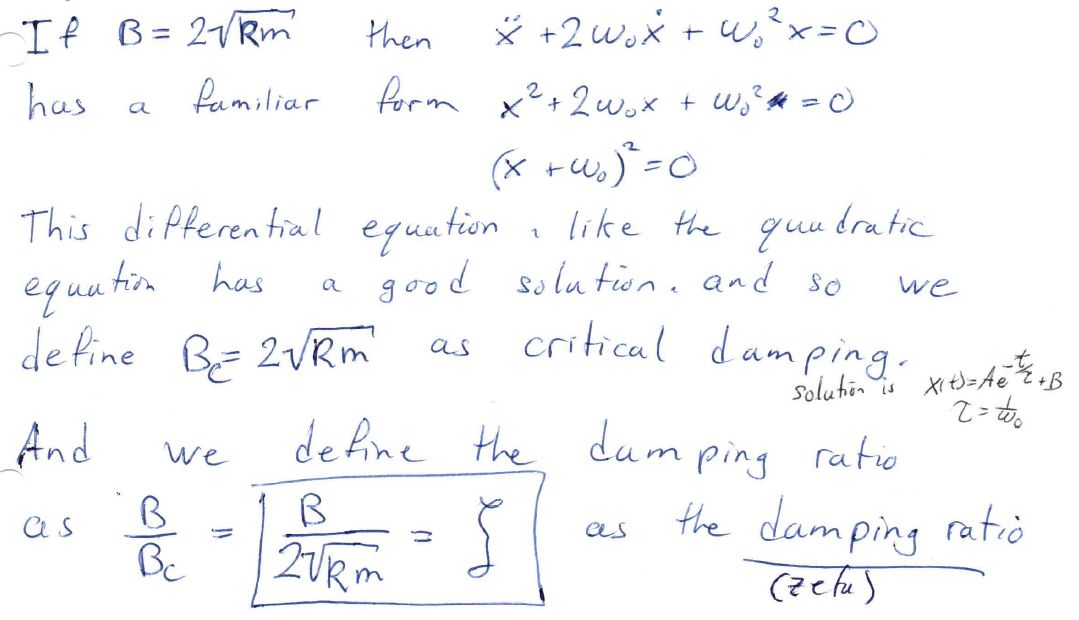 If B = 2√km then ẍ + 2ω₀ẋ + ω₀²x = 0
has a familiar form x² + 2ω₀x + ω₀² = 0
(x + ω₀)² = 0
This differential equation, like the quadratic
equation has a good solution. and so we
define B_c = 2√km as critical damping.
solution is x(t) = Ae^(-t/τ) + B
τ = 1/ω₀
And we define the damping ratio
as B/B_c = B/(2√km) = ζ as the damping ratio
(zeta)